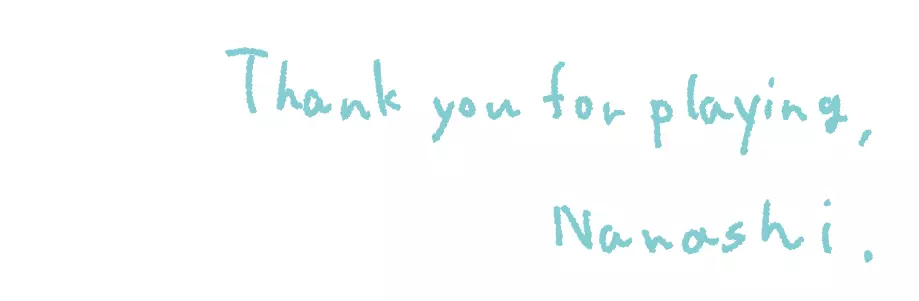 Thank you for playing,
Nanashi.